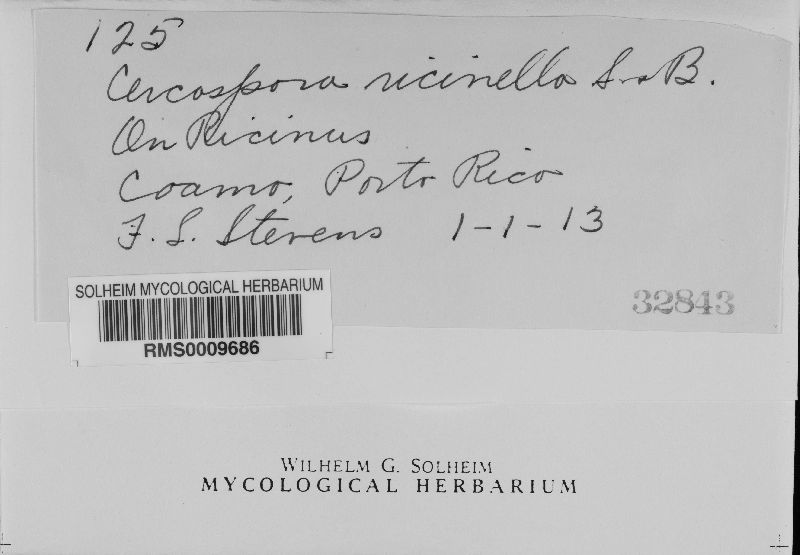 125
Cercospora ricinella S. & B.
On Ricinus
Coamo, Porto Rico
F. L. Stevens 1-1-13
SOLHEIM MYCOLOGICAL HERBARIUM
RMS0009686
32843
WILHELM G. SOLHEIM
MYCOLOGICAL HERBARIUM